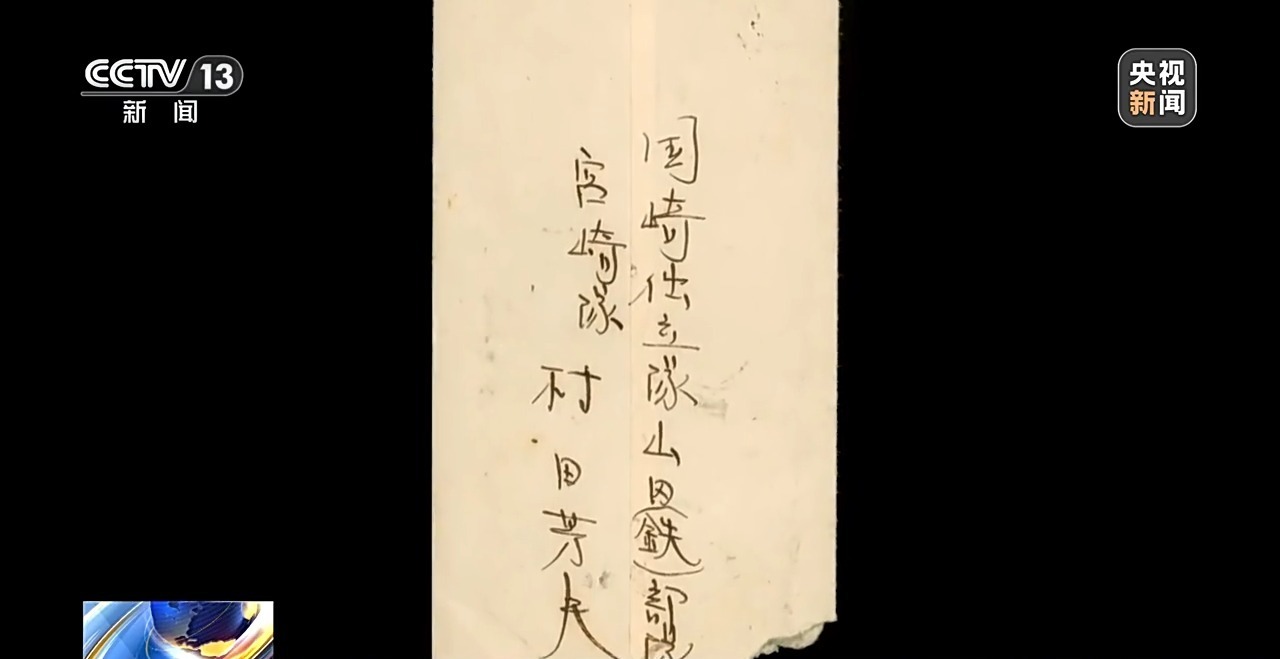 CCTV 13
新闻
央视
新闻
国崎仕立隊山田(鉄)部隊
宮崎隊 村田芳夫